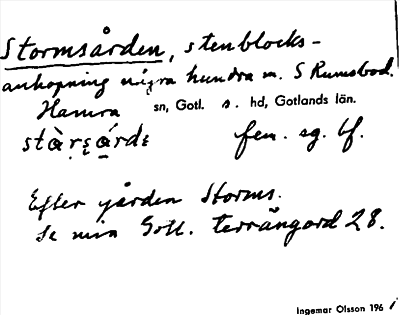 Stormsården, stenblocks-
anhopning några hundra m. S Rumsbod.
Hamra sn, Gotl. s. hd, Gotlands län.
fem. sg. bf.
Efter gården Storms.
Se min Gotl. terrängord 28.
Ingemar Olsson 196